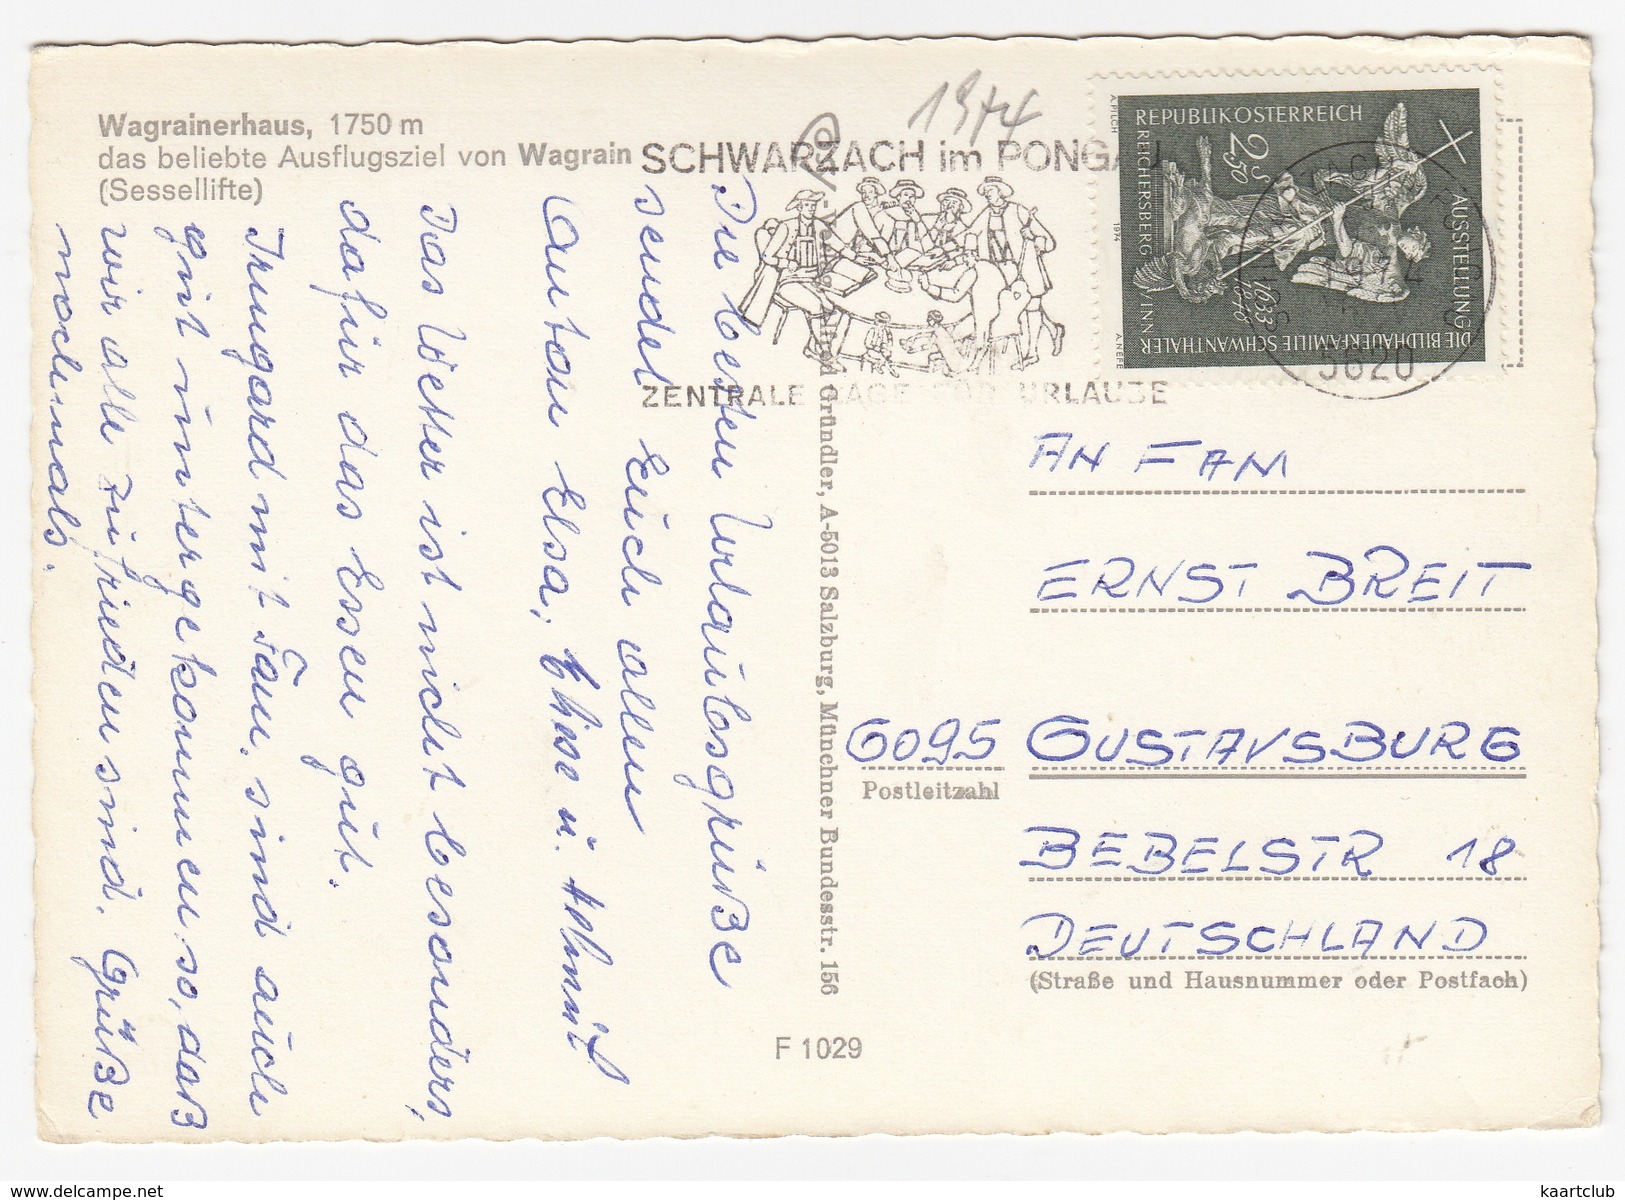 Wagrainerhaus, 1750 m
das beliebte Ausflugsziel von Wagrain
(Sessellifte)
1974
SCHWARZACH im PONGAU
ZENTRALE LAGE FÜR URLAUBE
REPUBLIK ÖSTERREICH
2 S 50
REICHERSBERG / INN
AUSSTELLUNG
DIE BILDHAUERFAMILIE SCHWANTHALER
1633
A. PILCH
1974
A. NEFE
5620
Die besten Urlaubsgrüße
sendet Euch allen
Anton Elsa,
Das Wetter ist nicht besonders,
dafür das Essen gut.
Irmgard mit Fam. sind auch
gut untergekommen, so, daß
wir alle zufrieden sind. Grüße
nochmals.
Gründler, A-5013 Salzburg, Münchner Bundesstr. 156
F 1029
AN FAM
ERNST BREIT
6095 GUSTAVSBURG
Postleitzahl
BEBELSTR 18
DEUTSCHLAND
(Straße und Hausnummer oder Postfach)
www.delcampe.net
kaartclub